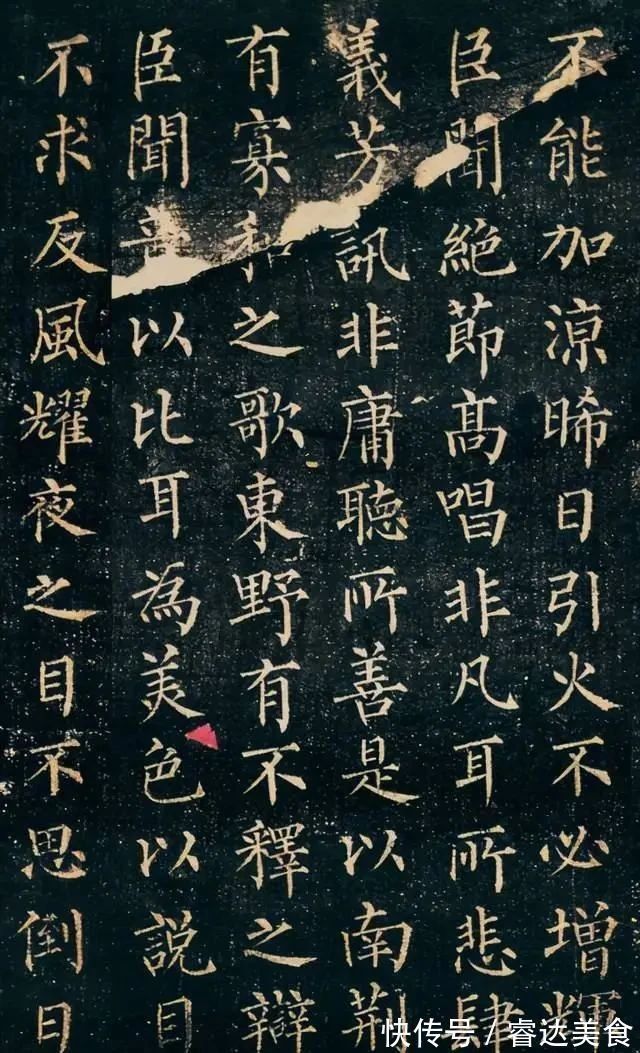 不能加涼晞日引火不必增輝
臣聞絕節高唱非凡耳所悲肆
義芳訊非庸聽所善是以南荊
有寡和之歌東野有不釋之辯
臣聞音以比耳為美色以說目
不求反風耀夜之目不思倒日
快传号/睿达美食